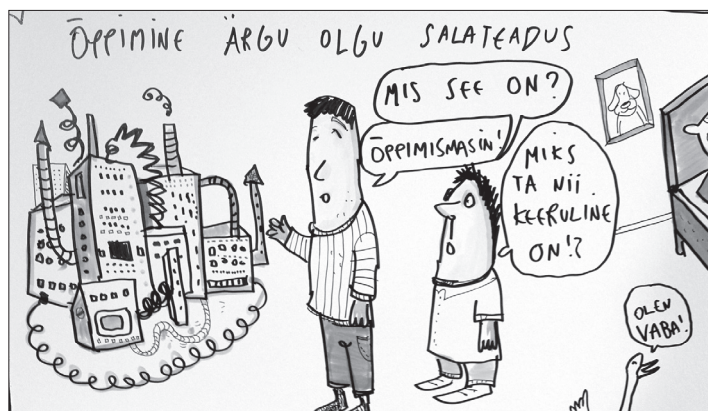 ÕPPIMINE ÄRGU OLGU SALATEADUS
MIS SEE ON?
ÕPPIMISMASIN!
MIKS
TA NII
KEERULINE
ON!?
OLEN
VABA!